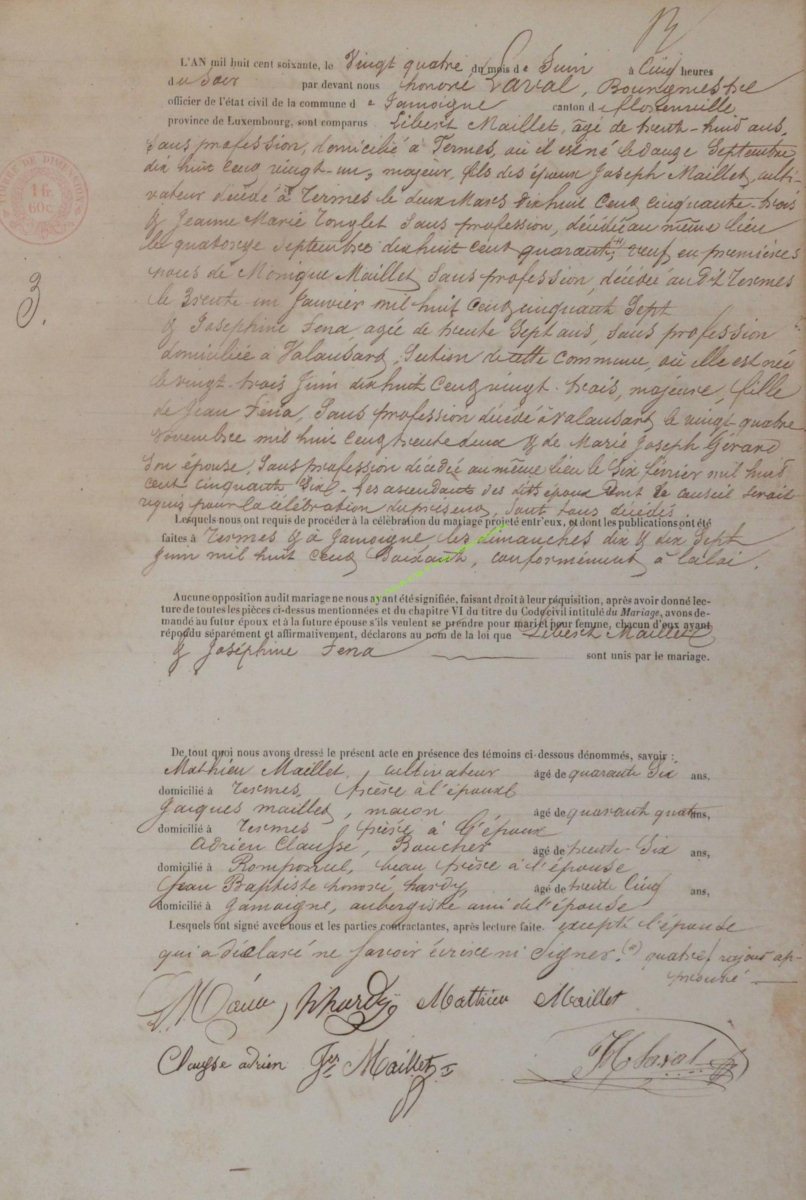 L'AN mil huit cent soixante, le Vingt quatre du mois de Juin à Cinq heures
du Soir par devant nous honoré Laval, Bourgmestre
officier de l'état civil de la commune de Jamoigne canton de florenville
province de Luxembourg, sont comparus Libert Maillet, âgé de trente-huit ans,
sans profession, domicilié à Termes, où il est né le douze Septembre
dix huit cent vingt-un, majeur, fils des époux Joseph Maillet, culti-
vateur décédé à Termes le deux Mars dix huit cent cinquante-trois
& Jeanne Marie Tonglet sans profession, décédée au même lieu
le quatorze Septembre dix huit cent quarante, veuf en premières
noces de Monique Maillet, sans profession, décédée au dt Termes
le trente un Janvier mil huit cent cinquante Sept
& Joséphine Fena, agée de trente Sept ans, sans profession
domiciliée à Valansard, Section de cette commune, où elle est née
le vingt-trois Juin dix huit cent vingt-trois, majeure, fille
de Jean Fena, Sans profession décédé à Valansard le vingt quatre
novembre mil huit cent trente deux & de Marie Joseph Gérard
Son épouse, Sans profession décédée au même lieu le Six février mil huit
cent cinquante Six. Les ascendants des dits époux dont le conseil serait
requis pour la célébration du présent, sont tous décédés.
Lesquels nous ont requis de procéder à la célébration du mariage projeté entr'eux, et dont les publications ont été
faites à Termes & à Jamoigne les dimanches dix & dix Sept
Juin mil huit cent Soixante, conformément à la loi.
Aucune opposition audit mariage ne nous ayant été signifiée, faisant droit à leur réquisition, après avoir donné lec-
ture de toutes les pièces ci-dessus mentionnées et du chapitre VI du titre du Code civil intitulé du Mariage, avons de-
mandé au futur époux et à la future épouse s'ils veulent se prendre pour mari et pour femme, chacun d'eux ayant
répondu séparément et affirmativement, déclarons au nom de la loi que Libert Maillet
& Joséphine Fena sont unis par le mariage.
De tout quoi nous avons dressé le présent acte en présence des témoins ci-dessous dénommés, savoir :
Mathieu Maillet, cultivateur âgé de quarante Six ans,
domicilié à Termes, frère à l'époux
Jacques Maillet, maçon, âgé de quarante quatre ans,
domicilié à Termes frère à l'époux
Adrien Clausse, Boucher âgé de trente-Six ans,
domicilié à Romponcel, beau frère à l'épouse
Jean Baptiste honoré hardy, âgé de trente Cinq ans,
domicilié à Jamoigne, aubergiste ami de l'épouse
Lesquels ont signé avec nous et les parties contractantes, après lecture faite. excepté l'épouse
qui a déclaré ne savoir écrire ni Signer. (*) quatre, rajout ap-
prouvé
hhardy Mathieu Maillet
Clausse adrien Maillet
H Laval
3.
TIMBRE DE DIMENSION
1 fr.
60c